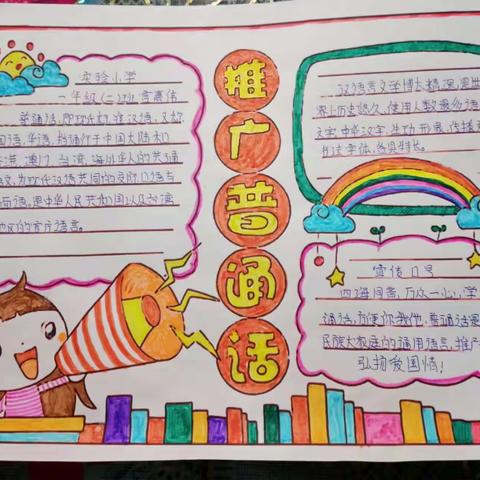 实验小学
一年级(二)班
普通话,即现代标准汉语,又称
国语、华语,指通行于中国大陆和
港、澳门、台湾、海外华人的共通
语文,为现代汉语共同的交际口语与
面语。是中华人民共和国以及台湾
地区的官方语言。
推
广
普
通
话
汉语言文学博大精深,是世
界上历史悠久,使用人数最多的语
文字,中华汉字,生动形象,传播
书法字体,各具特长。
宣传口号
四海同音,万众一心,学
通话,方便你我他,普通话是
民族大家庭的通用语言,推广
弘扬爱国情!